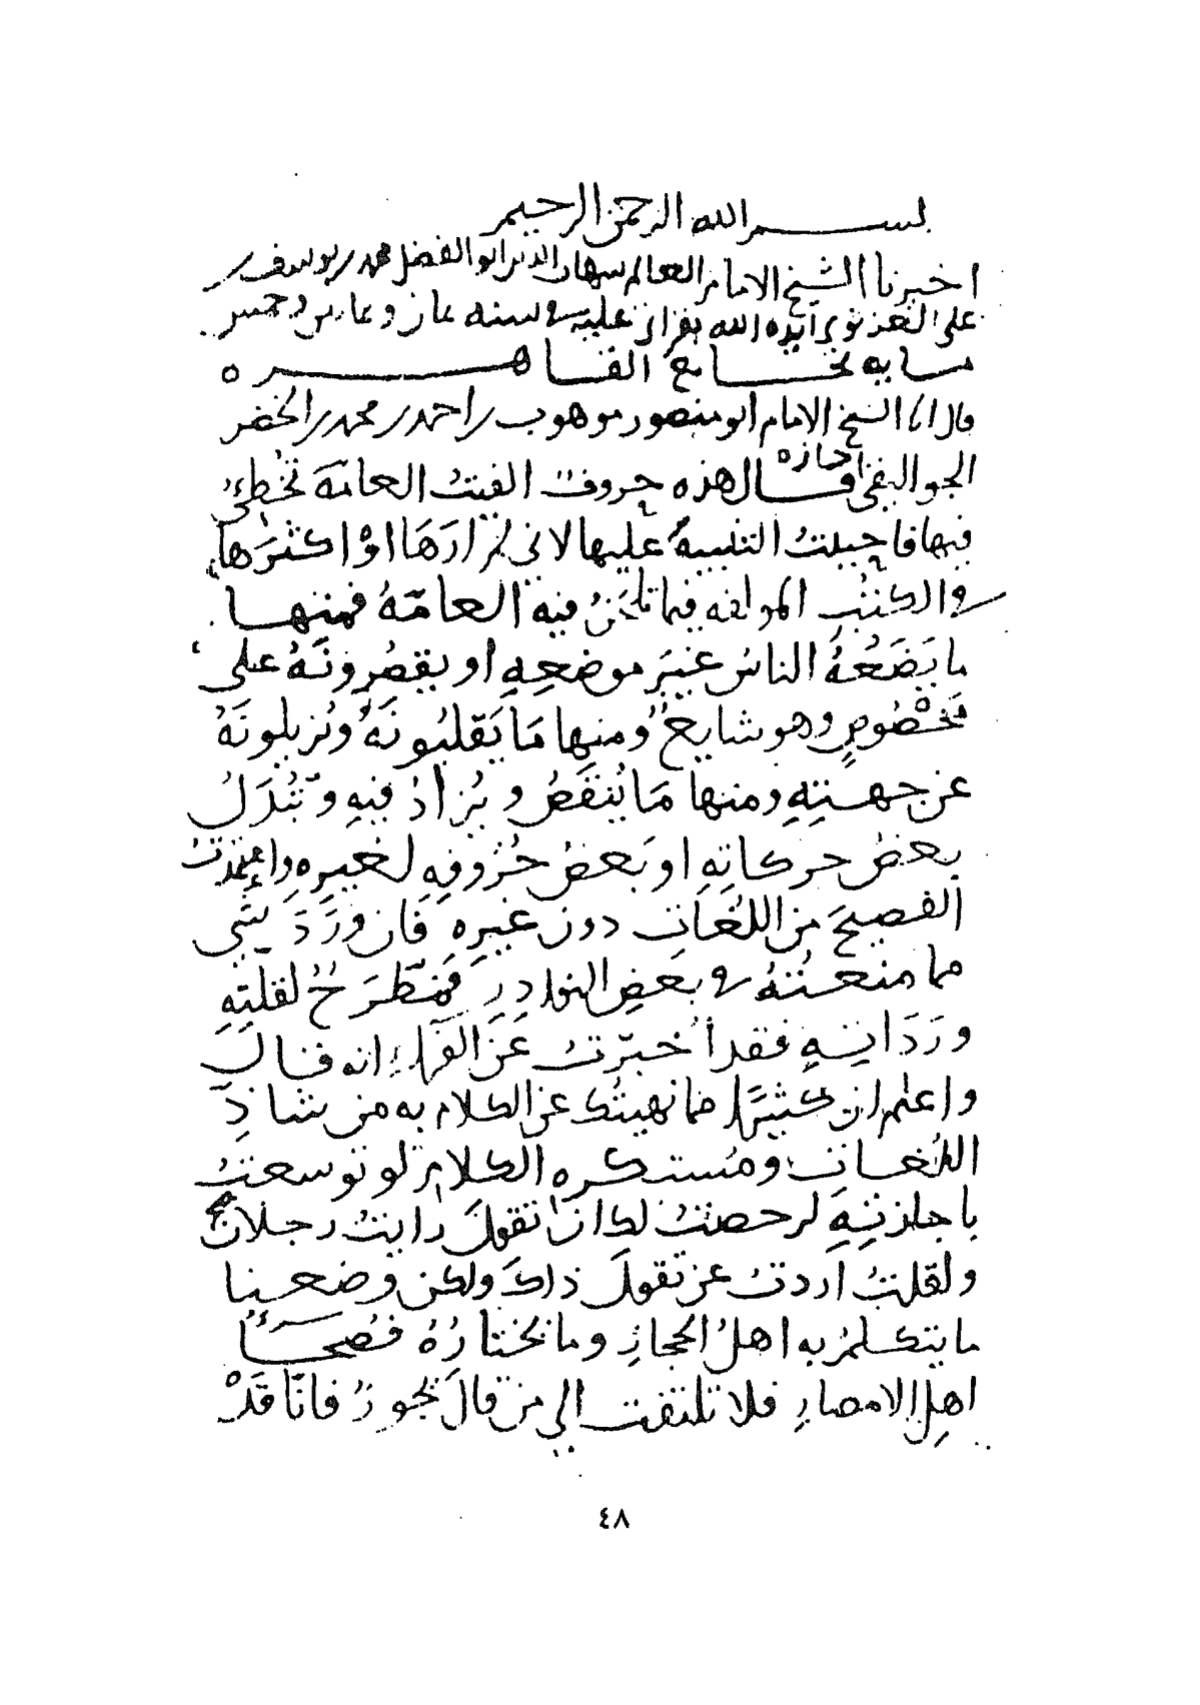 بسم الله الرحمن الرحيم
اخبرنا الشيخ الامام العالم شهاب الدين ابو الفضل محمد بن يوسف بن
على الغزنوي ايده الله بقراتي عليه في سنه ثمان وثمانين وخمس
مايه بجامع القاهره
قال انا الشيخ الامام ابو منصور موهوب بن احمد بن محمد بن الخضر
الجواليقي اجازه قال هذه حروفٌ الفيتُ العامّةَ تُخطِئُ
فيها فاحببتُ التنبيهَ عليها لاني لم ارَهَا اوْ اكثرَها
في الكتُبِ المولفه فيما تلحَنُ فيه العامّهُ فمنها
ما يَضَعُهُ الناسُ غيرَ موضعِهِ او يقصُرونَهُ على
مَخْصُوصٍ وهو شايعٌ ومنها مَا يَقلبُونَهُ ويُزيلونَهُ
عن جهتِهِ ومنها مَا يُنقَصُ ويُزادُ فيهِ وتُبْدَلُ
بعضُ حركاتِهِ او بَعضُ حُرُوفِهِ لغيرِهِ واعتمدتُ
الفصيحَ من اللُّغَاتِ دون غيرِهِ فان ورَدَ شي
مما منعتُهُ في بعضِ النوادرِ فمُطّرَحٌ لقلّتِهِ
ورَدَاتِهِ فقد أُخبِرتُ عَن الفرّاءِ انه قال
واعلم ان كثيرًا مما نهيتُك عن الكلام به من شاذِّ
اللُغاتِ ومُستكرهِ الكلام لو توسعتُ
باجازتِهِ لرخصتُ لك ان تقولَ رايتُ رجلان
ولقلتُ اردتُ عن تقولَ ذاكَ ولكن وضعنا
ما يتكلمُ به اهلُ الحجازِ وما يختارُهُ فُصحَاءُ
اهلِ الامصارِ فلا تلتفت الى من قالَ يجوزُ فانّا قَدْ
٤٨